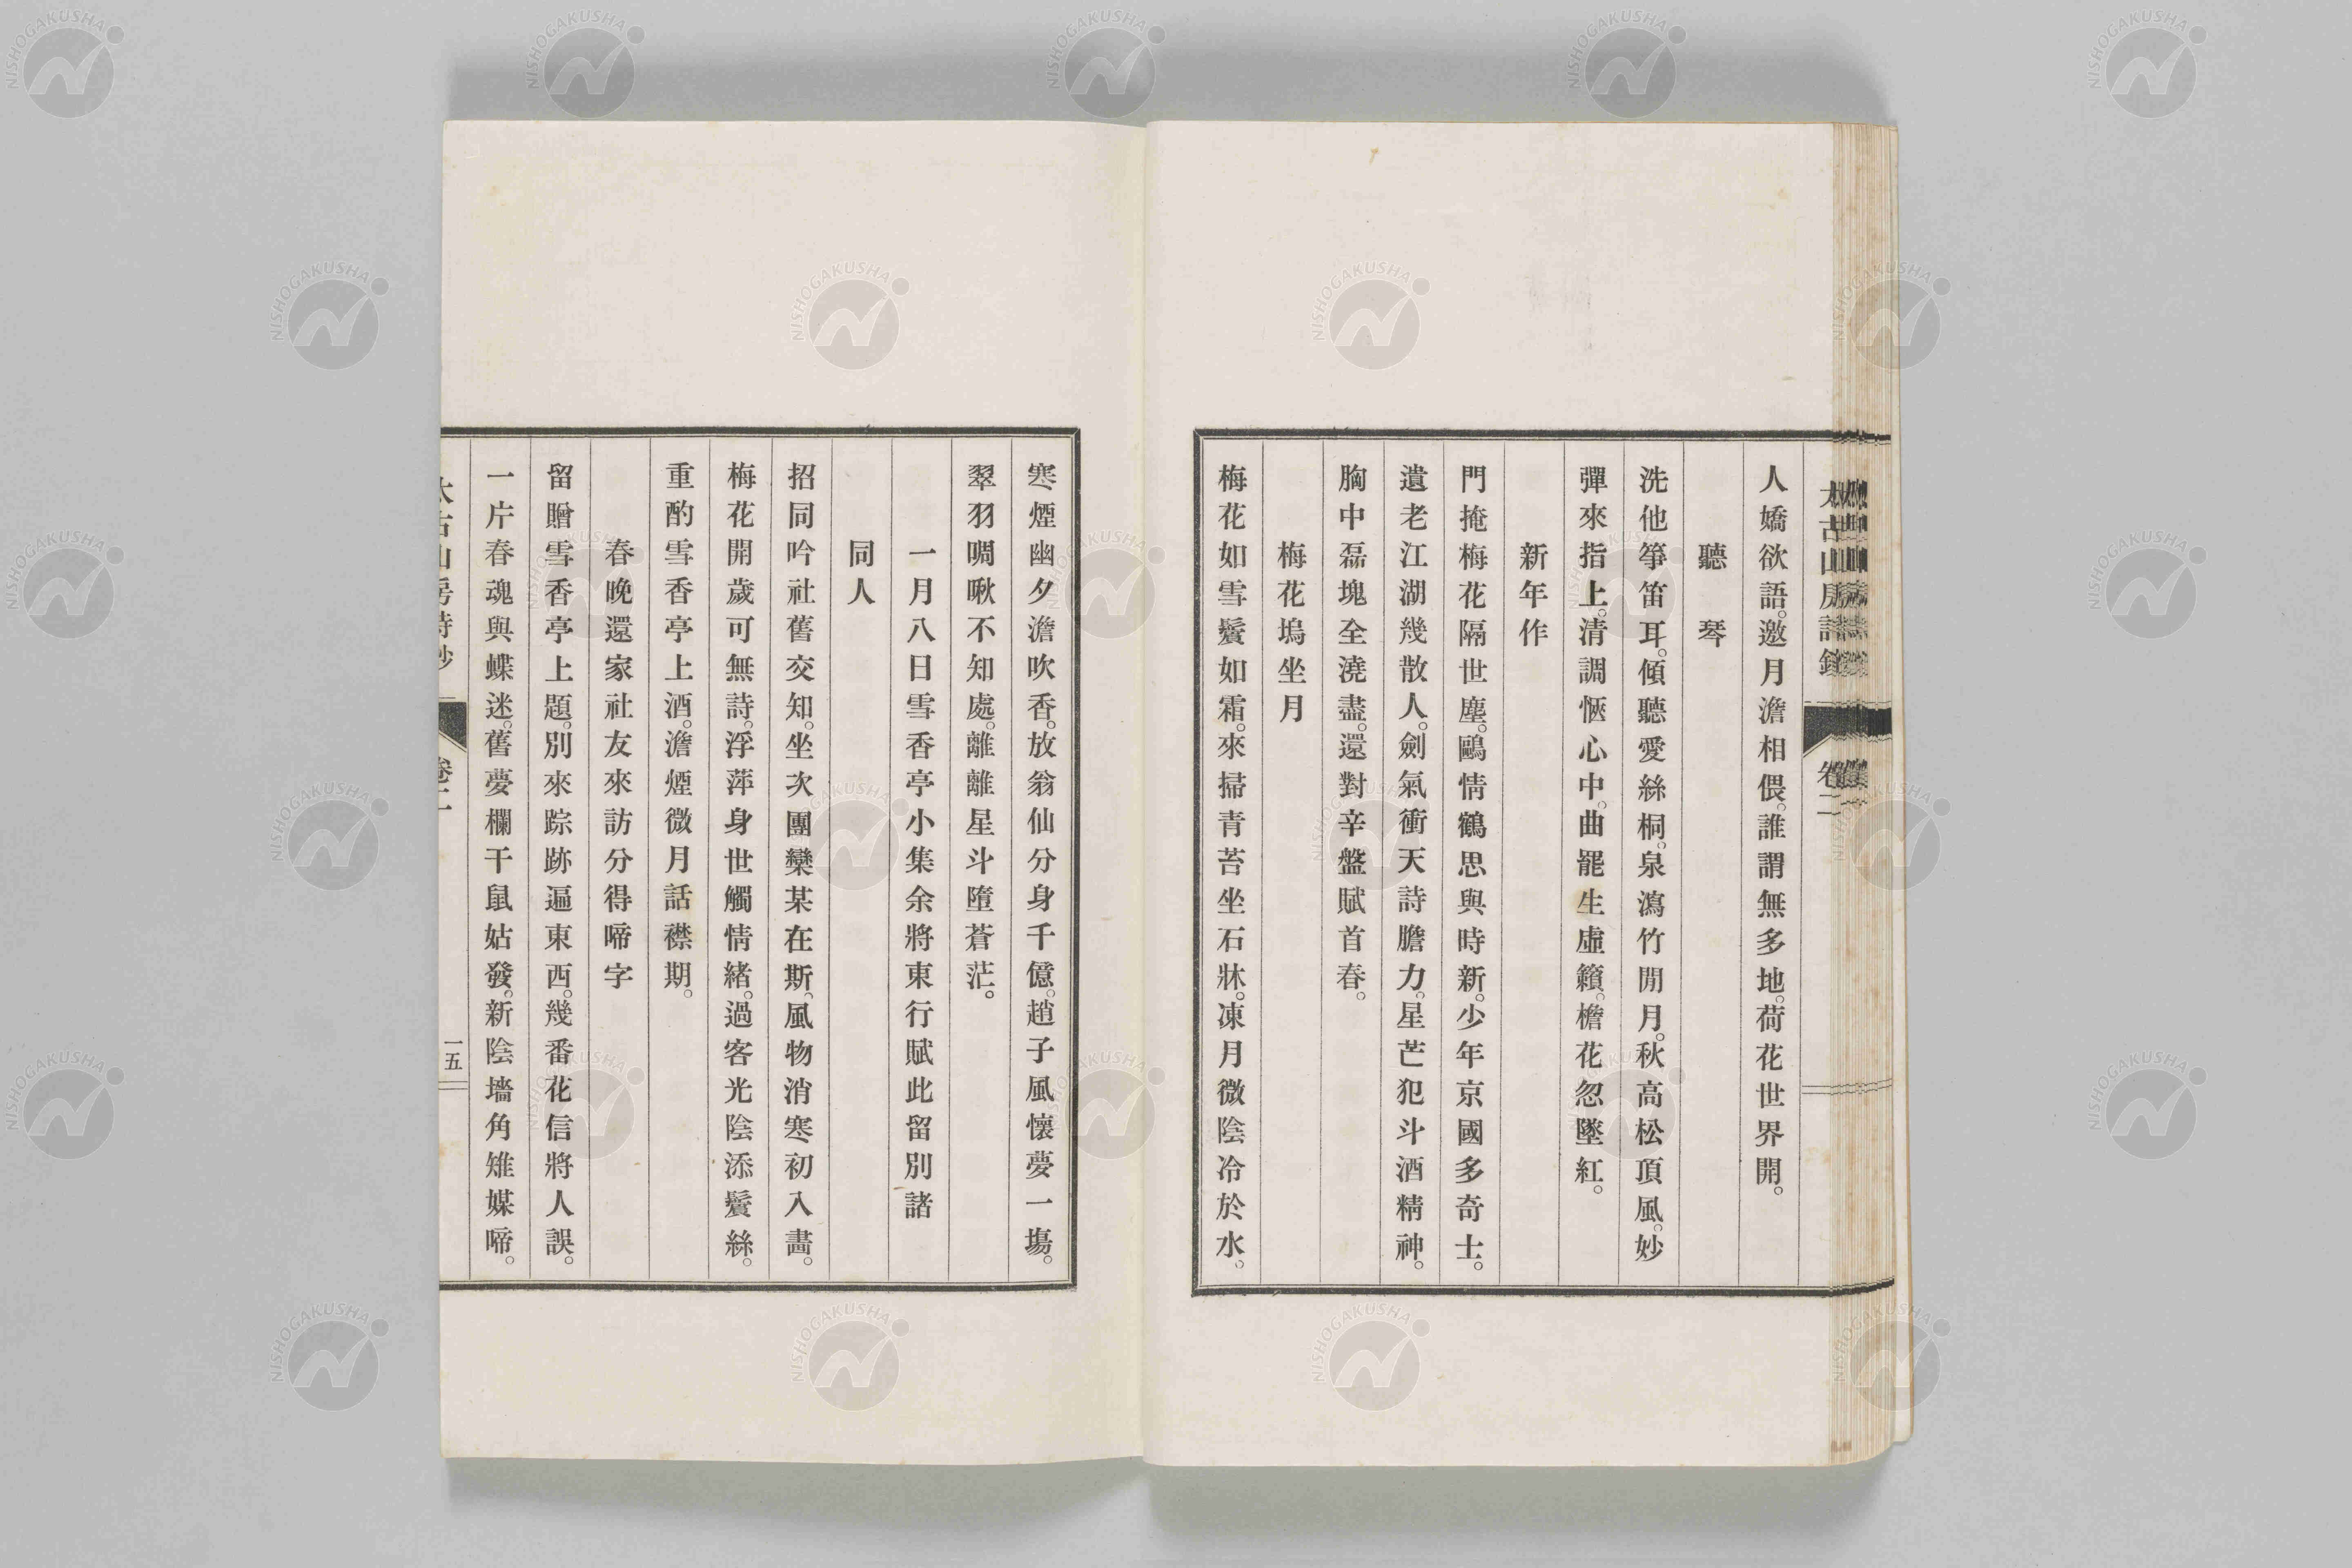 太古山房詩鈔 卷二
人嬌欲語。邀月澹相偎。誰謂無多地。荷花世界開。
聽琴
洗他箏笛耳。傾聽愛絲桐。泉瀉竹閒月。秋高松頂風。妙
彈來指上。清調愜心中。曲罷生虛籟。檐花忽墜紅。
新年作
門掩梅花隔世塵。鷗情鶴思與時新。少年京國多奇士。
遺老江湖幾散人。劍氣衝天詩膽力。星芒犯斗酒精神。
胸中磊塊全澆盡。還對辛盤賦首春。
梅花塢坐月
梅花如雪鬢如霜。來掃青苔坐石牀。凍月微陰冷於水。
寒煙幽夕澹吹香。放翁仙分身千億。趙子風懷夢一場。
翠羽啁啾不知處。離離星斗墮蒼茫。
一月八日雪香亭小集余將東行賦此留別諸
同人
招同吟社舊交知。坐次團欒某在斯。風物消寒初入畵。
梅花開歲可無詩。浮萍身世觸情緒。過客光陰添鬢絲。
重酌雪香亭上酒。澹煙微月話襟期。
春晚還家社友來訪分得啼字
留贈雪香亭上題。別來踪跡遍東西。幾番花信將人誤。
一片春魂與蝶迷。舊夢欄干鼠姑發。新陰墻角雉媒啼。
太古山房詩鈔 卷二 一五
NISHOGAKUSHA